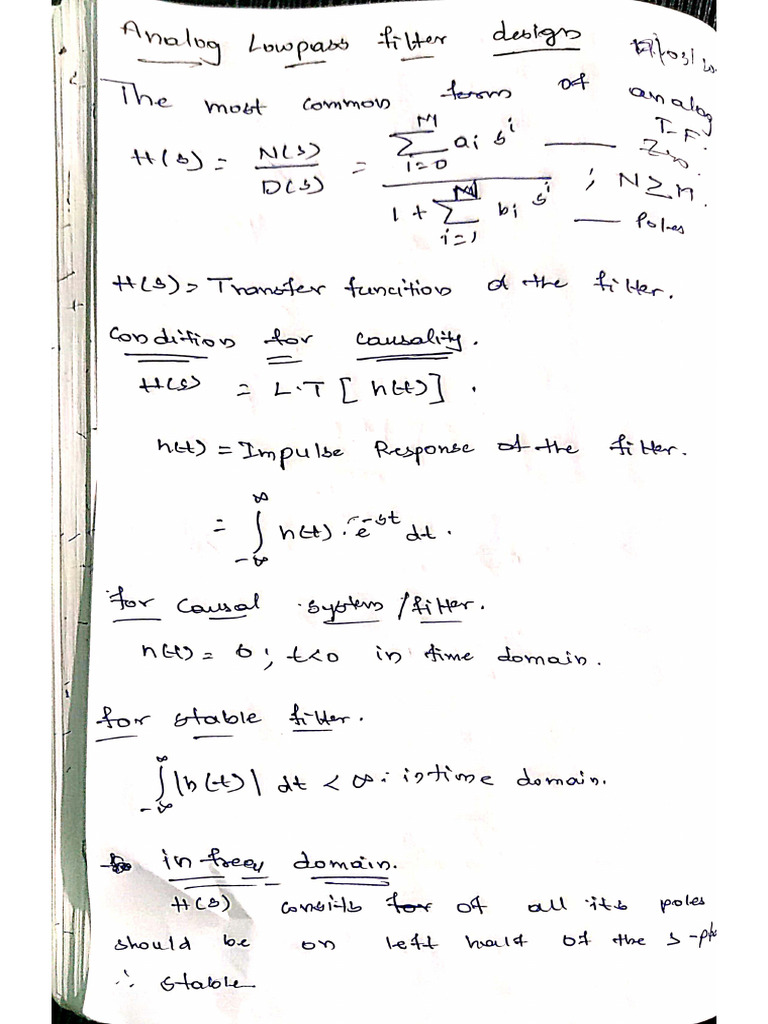 Analog Lowpass filter design
The most common form of analog T.F.
H(s) = N(s)/D(s) = ∑_{i=0}^{M} ai s^i —— Zero / 1 + ∑_{i=1}^{N} bi s^i —— Poles ; N ≥ M.
H(s) = Transfer funcition of the filter.
Condition for causality.
H(s) = L.T [h(t)].
h(t) = Impulse Response of the filter.
= ∫_{-∞}^{∞} h(t) . e^{-st} dt.
for causal system / filter.
h(t) = 0 ; t<0 in time domain.
for stable filter.
∫_{-∞}^{∞} |h(t)| dt < ∞ : in time domain.
in freqy domain.
H(s) consits of all its poles
should be on left half of the s-pla
∴ stable